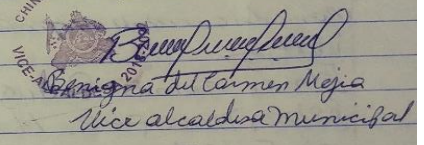 Benigna del Carmen Mejia
Vice alcaldesa Municipal